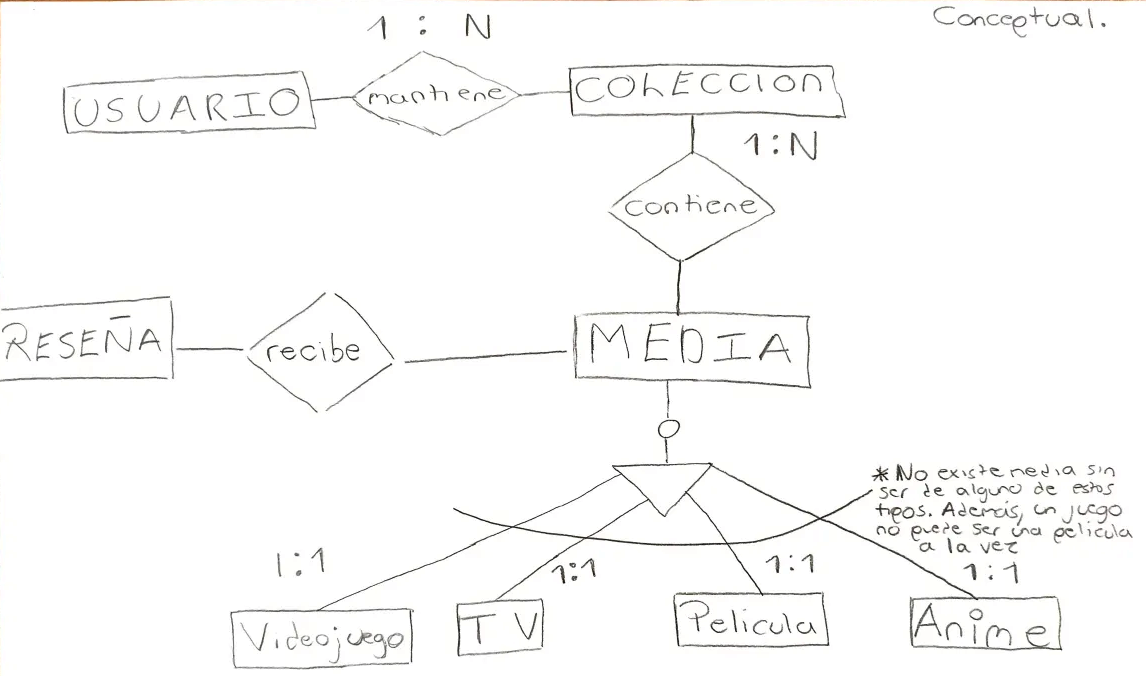 Conceptual.
1 : N
USUARIO
mantiene
COLECCION
1:N
contiene
RESEÑA
recibe
MEDIA
*No existe media sin
ser de alguno de estos
tipos. Además, un juego
no puede ser una pelicula
a la vez
1:1
1:1
1:1
1:1
Videojuego
TV
Pelicula
Anime